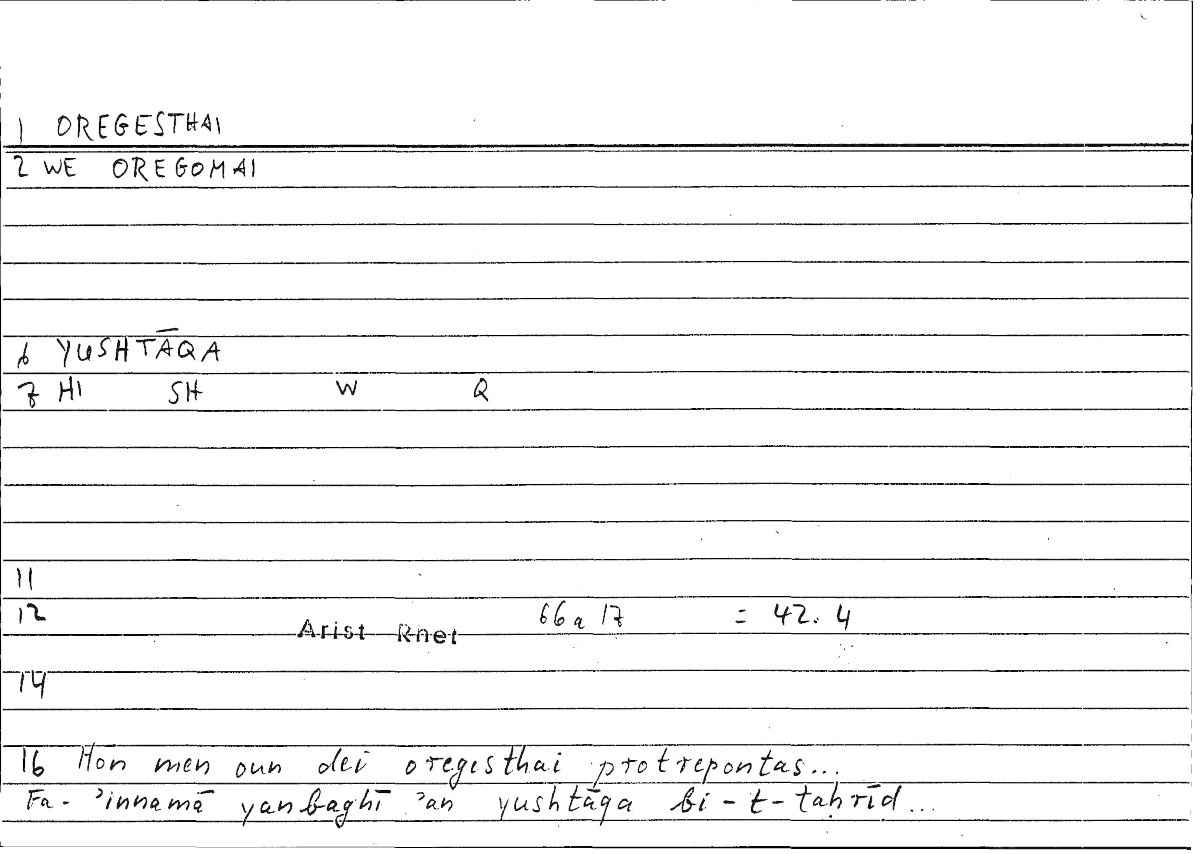 1 OREGESTHAI
2 WE OREGOMAI
6 YUSHTĀQA
7 HI SH W Q
11
12 66a17 = 42.4
Arist Rhet
14
16 Hōn men oun dei oregesthai protrepontas...
Fa-ʾinnamā yanbaghī ʾan yushtāqa bi-t-taḥrīḍ...